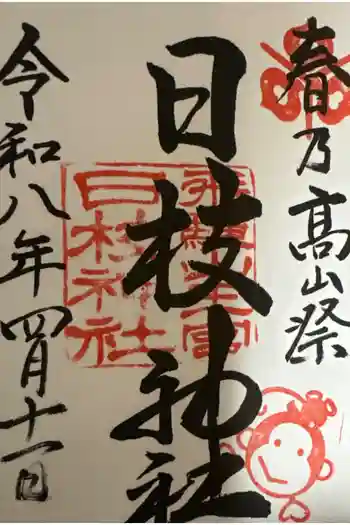 春乃高山祭
日枝神社
日枝神社
令和八年四月十一日